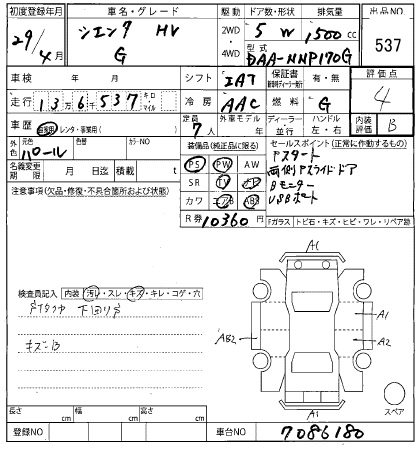 初度登録年月 車名・グレード 駆動 ドア数・形状 排気量 出品NO
29/4月 シエンタ HV 2WD 5 W 1,500 cc 537
G 4WD 型式 DAA-NHP170G
車検 年 月 シフト IAT 保証書 有・無 評価点
走行 136,537 キロ マイル 冷房 AAC 燃料 G 4
車歴 自家用 レンタ・事業用 定員 7人 外車モデル 年 ディーラー 並行 ハンドル 左・右 内装評価 B
外色 元色 パール 色替 カラーNO 装備品(純正品に限る) セールスポイント(正常に作動するもの)
名義変更期限 月 日迄 積載 t PS PW AW Pスタート
注意事項(欠品・修復・不具合箇所および状態) SR TV ナビ 両側Pスライドドア
カワ エアB ABS Bモニター
R券 10360円 USBポート
Fガラス トビ石・キズ・ヒビ・ワレ・リペア跡
検査員記入 内装 汚レ・スレ・キズ・キレ・コゲ・穴
下回りサ
キズB
A1
AB2
A1
A2
A1
スペア
長さ cm 幅 cm 高さ cm
登録NO 車台NO 7086180